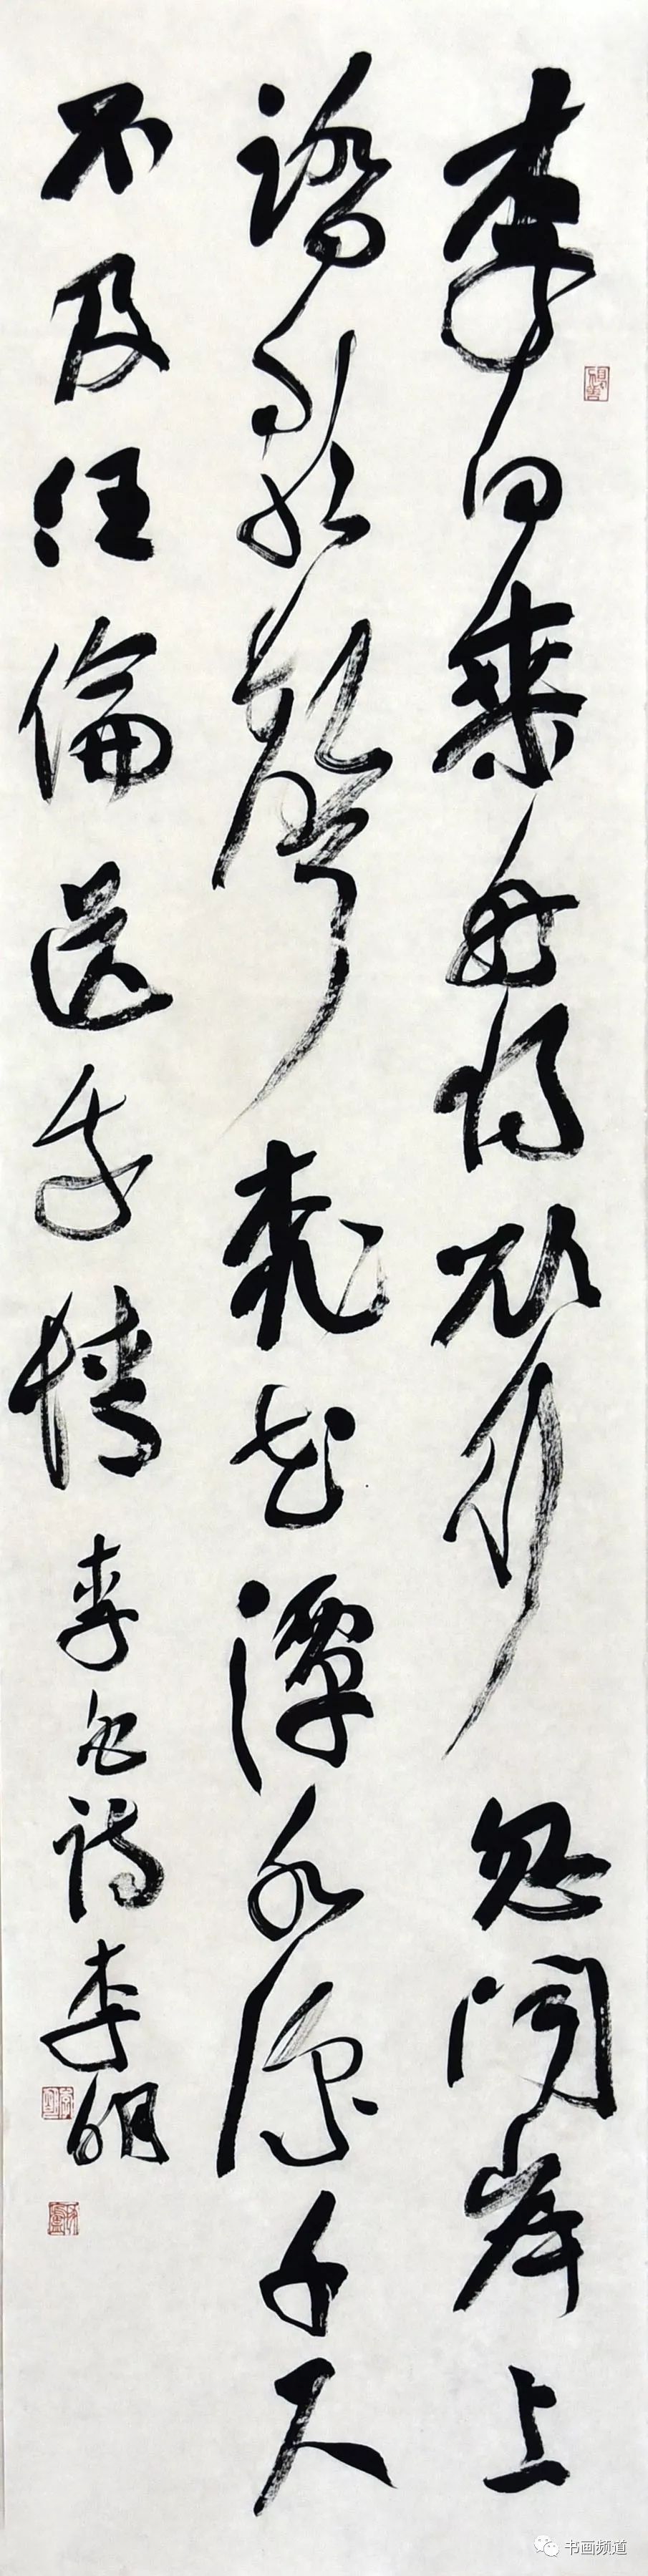 李白乘舟將欲行忽聞岸上
踏歌聲桃花潭水深千尺
不及汪倫送我情 李白詩 李明
书画频道